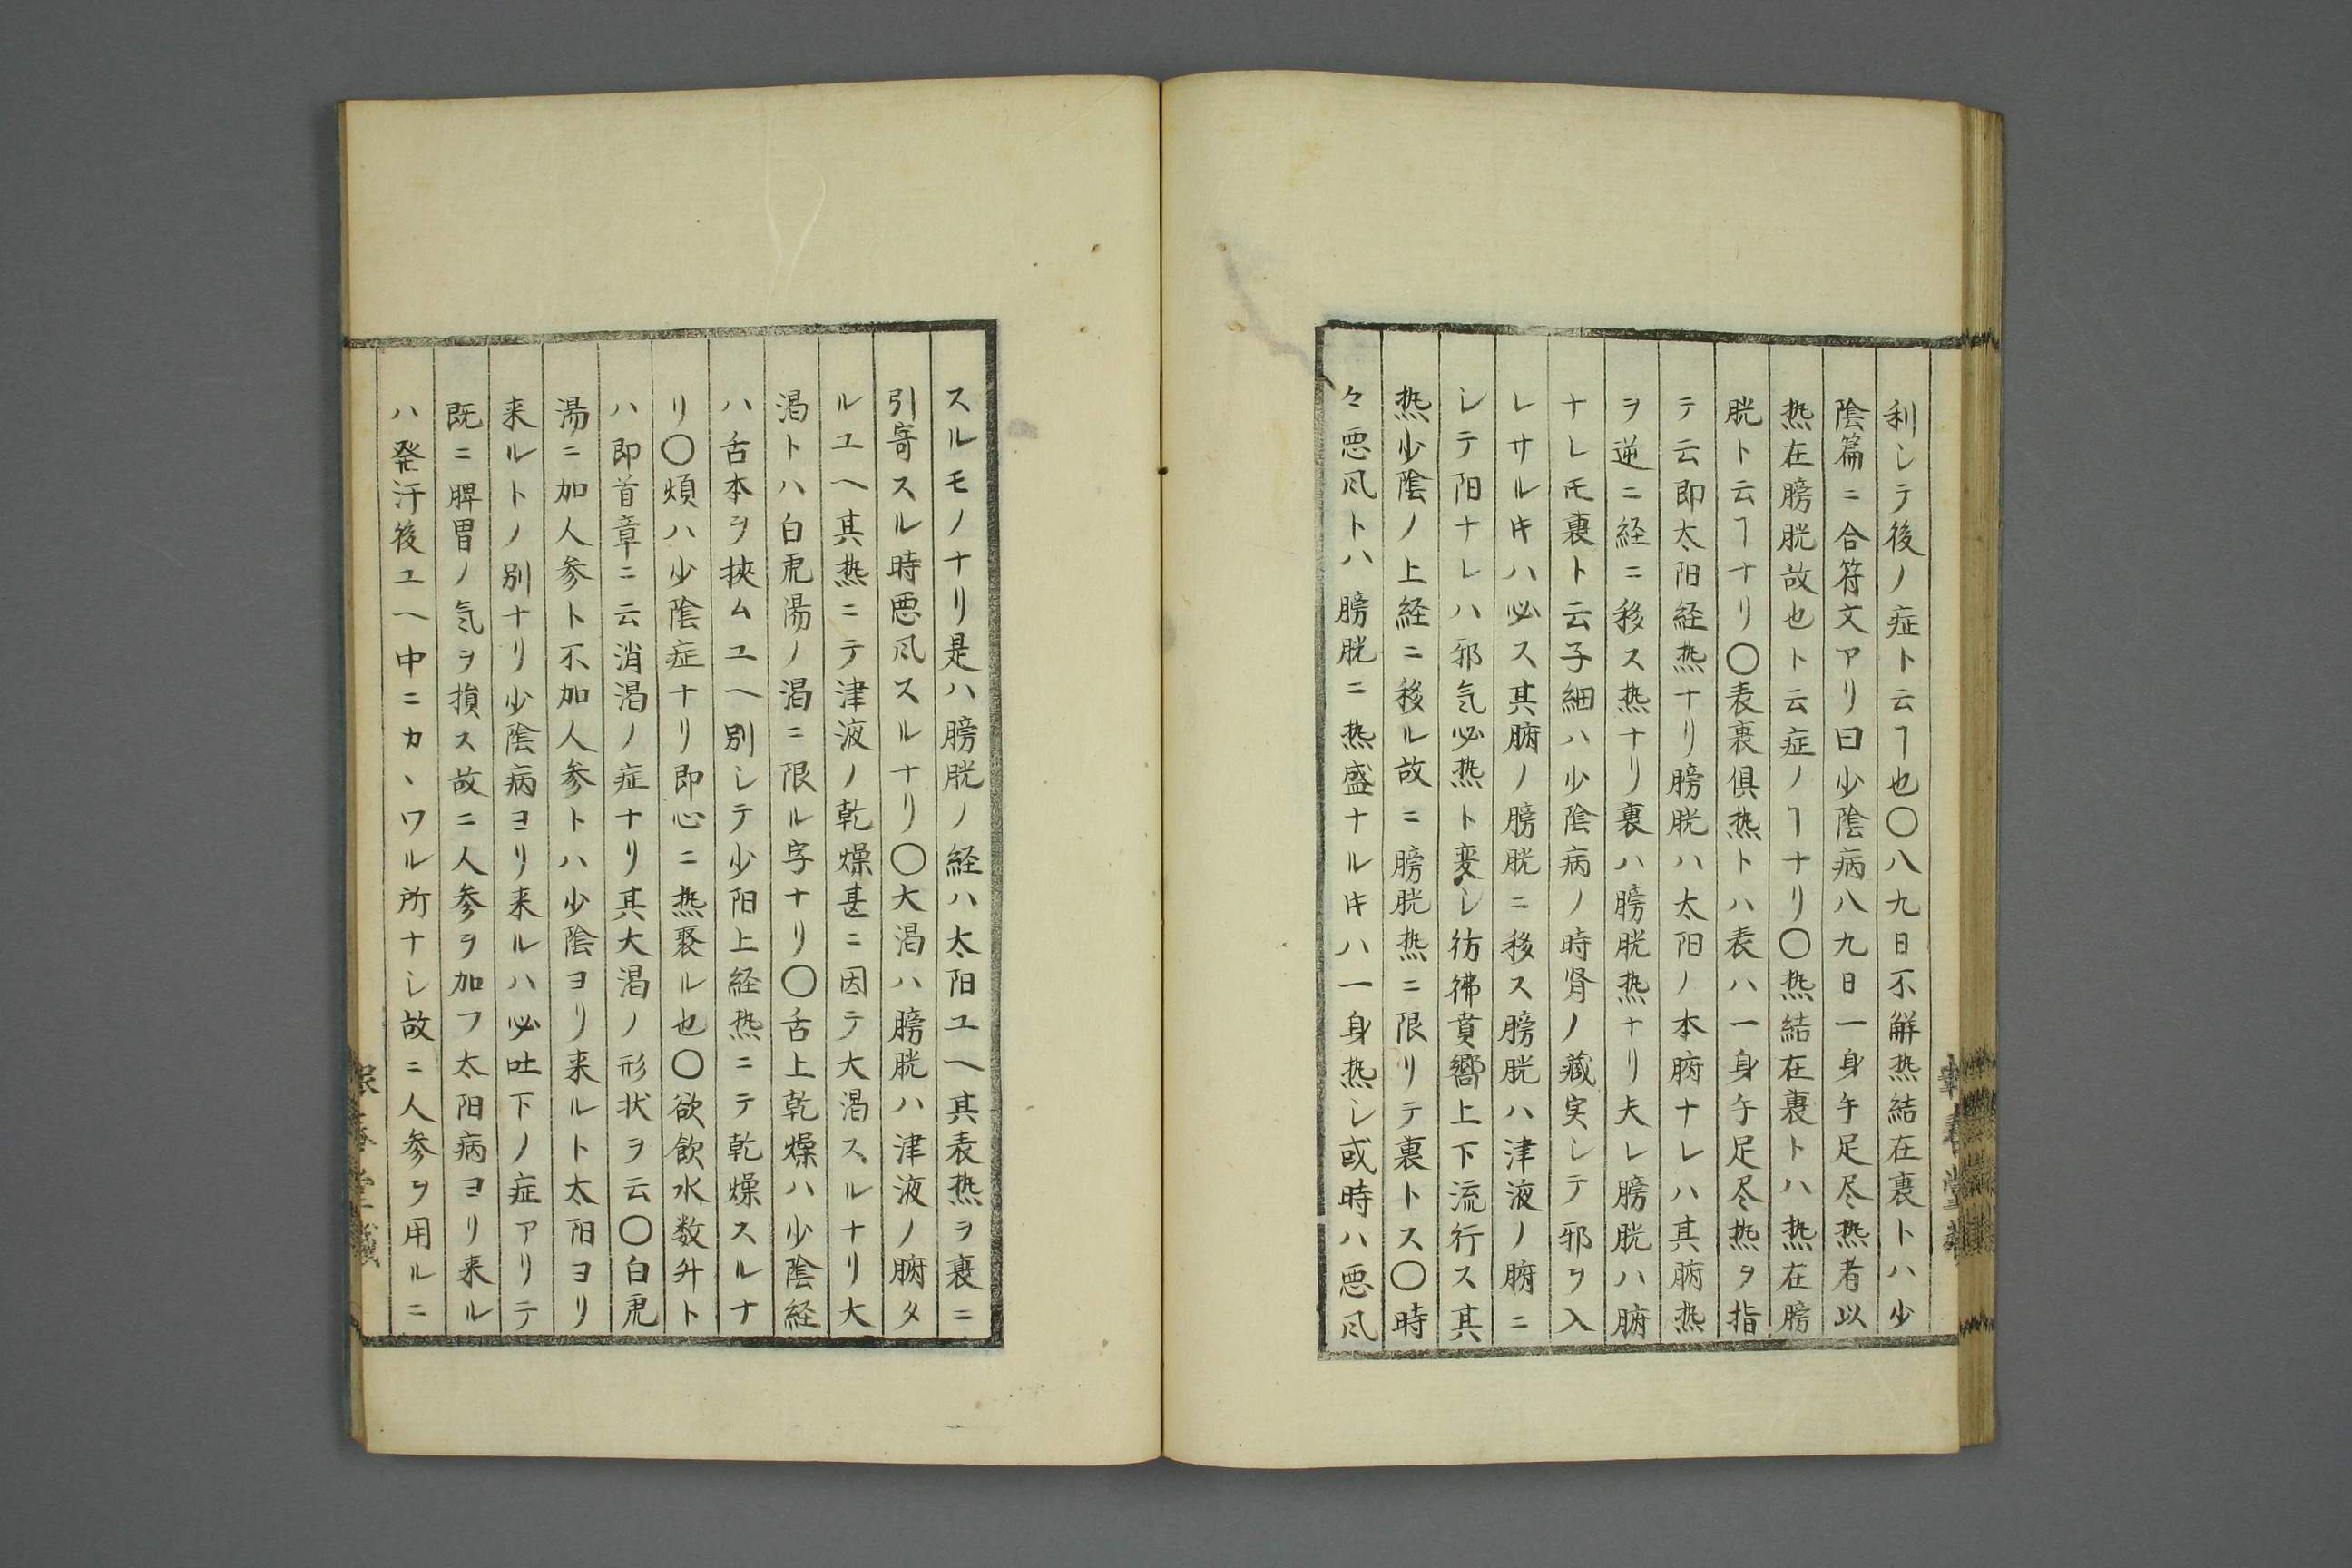 利シテ後ノ症ト云ヿ也〇八九日不解热結在裏トハ少
陰篇ニ合符文アリ曰少陰病八九日一身午足尽热者以
热在膀胱故也ト云症ノヿナリ〇热結在裏トハ热在膀
胱ト云ヿナリ〇表裏俱热トハ表ハ一身午足尽热ヲ指
テ云即太阳経热ナリ膀胱ハ太阳ノ本腑ナレハ其腑热
ヲ逆ニ経ニ移ス热ナリ裏ハ膀胱热ナリ夫レ膀胱ハ腑
ナレ𪜈裏ト云子細ハ少陰病ノ時肾ノ藏実シテ邪ヲ入
レサル𪜈ハ必ス其腑ノ膀胱ニ移ス膀胱ハ津液ノ腑ニ
シテ阳ナレハ邪気必热ト変シ彷彿賁嚮上下流行ス其
热少陰ノ上経ニ移ル故ニ膀胱热ニ限リテ裏トス〇時
々悪风トハ膀胱ニ热盛ナル𪜈ハ一身热シ或時ハ悪风
スルモノナリ是ハ膀胱ノ経ハ太阳ユヘ其表热ヲ裏ニ
引寄スル時悪风スルナリ〇大渇ハ膀胱ハ津液ノ腑タ
ルユヘ其热ニテ津液ノ乾燥甚ニ因テ大渇スルナリ大
渇トハ白虎陽ノ渇ニ限ル字ナリ〇舌上乾燥ハ少陰経
ハ舌本ヲ挾ムユヘ別シテ少阳上経热ニテ乾燥スルナ
リ〇煩ハ少陰症ナリ即心ニ热聚ル也〇欲飲水数升ト
ハ即首章ニ云消渇ノ症ナリ其大渇ノ形状ヲ云〇白虎
湯ニ加人参ト不加人参トハ少陰ヨリ来ルト太阳ヨリ
来ルトノ別ナリ少陰病ヨリ来ルハ必吐下ノ症アリテ
既ニ脾胃ノ気ヲ損ス故ニ人参ヲ加フ太阳病ヨリ来ル
ハ発汗後ユヘ中ニカヽワル所ナシ故ニ人参ヲ用ルニ